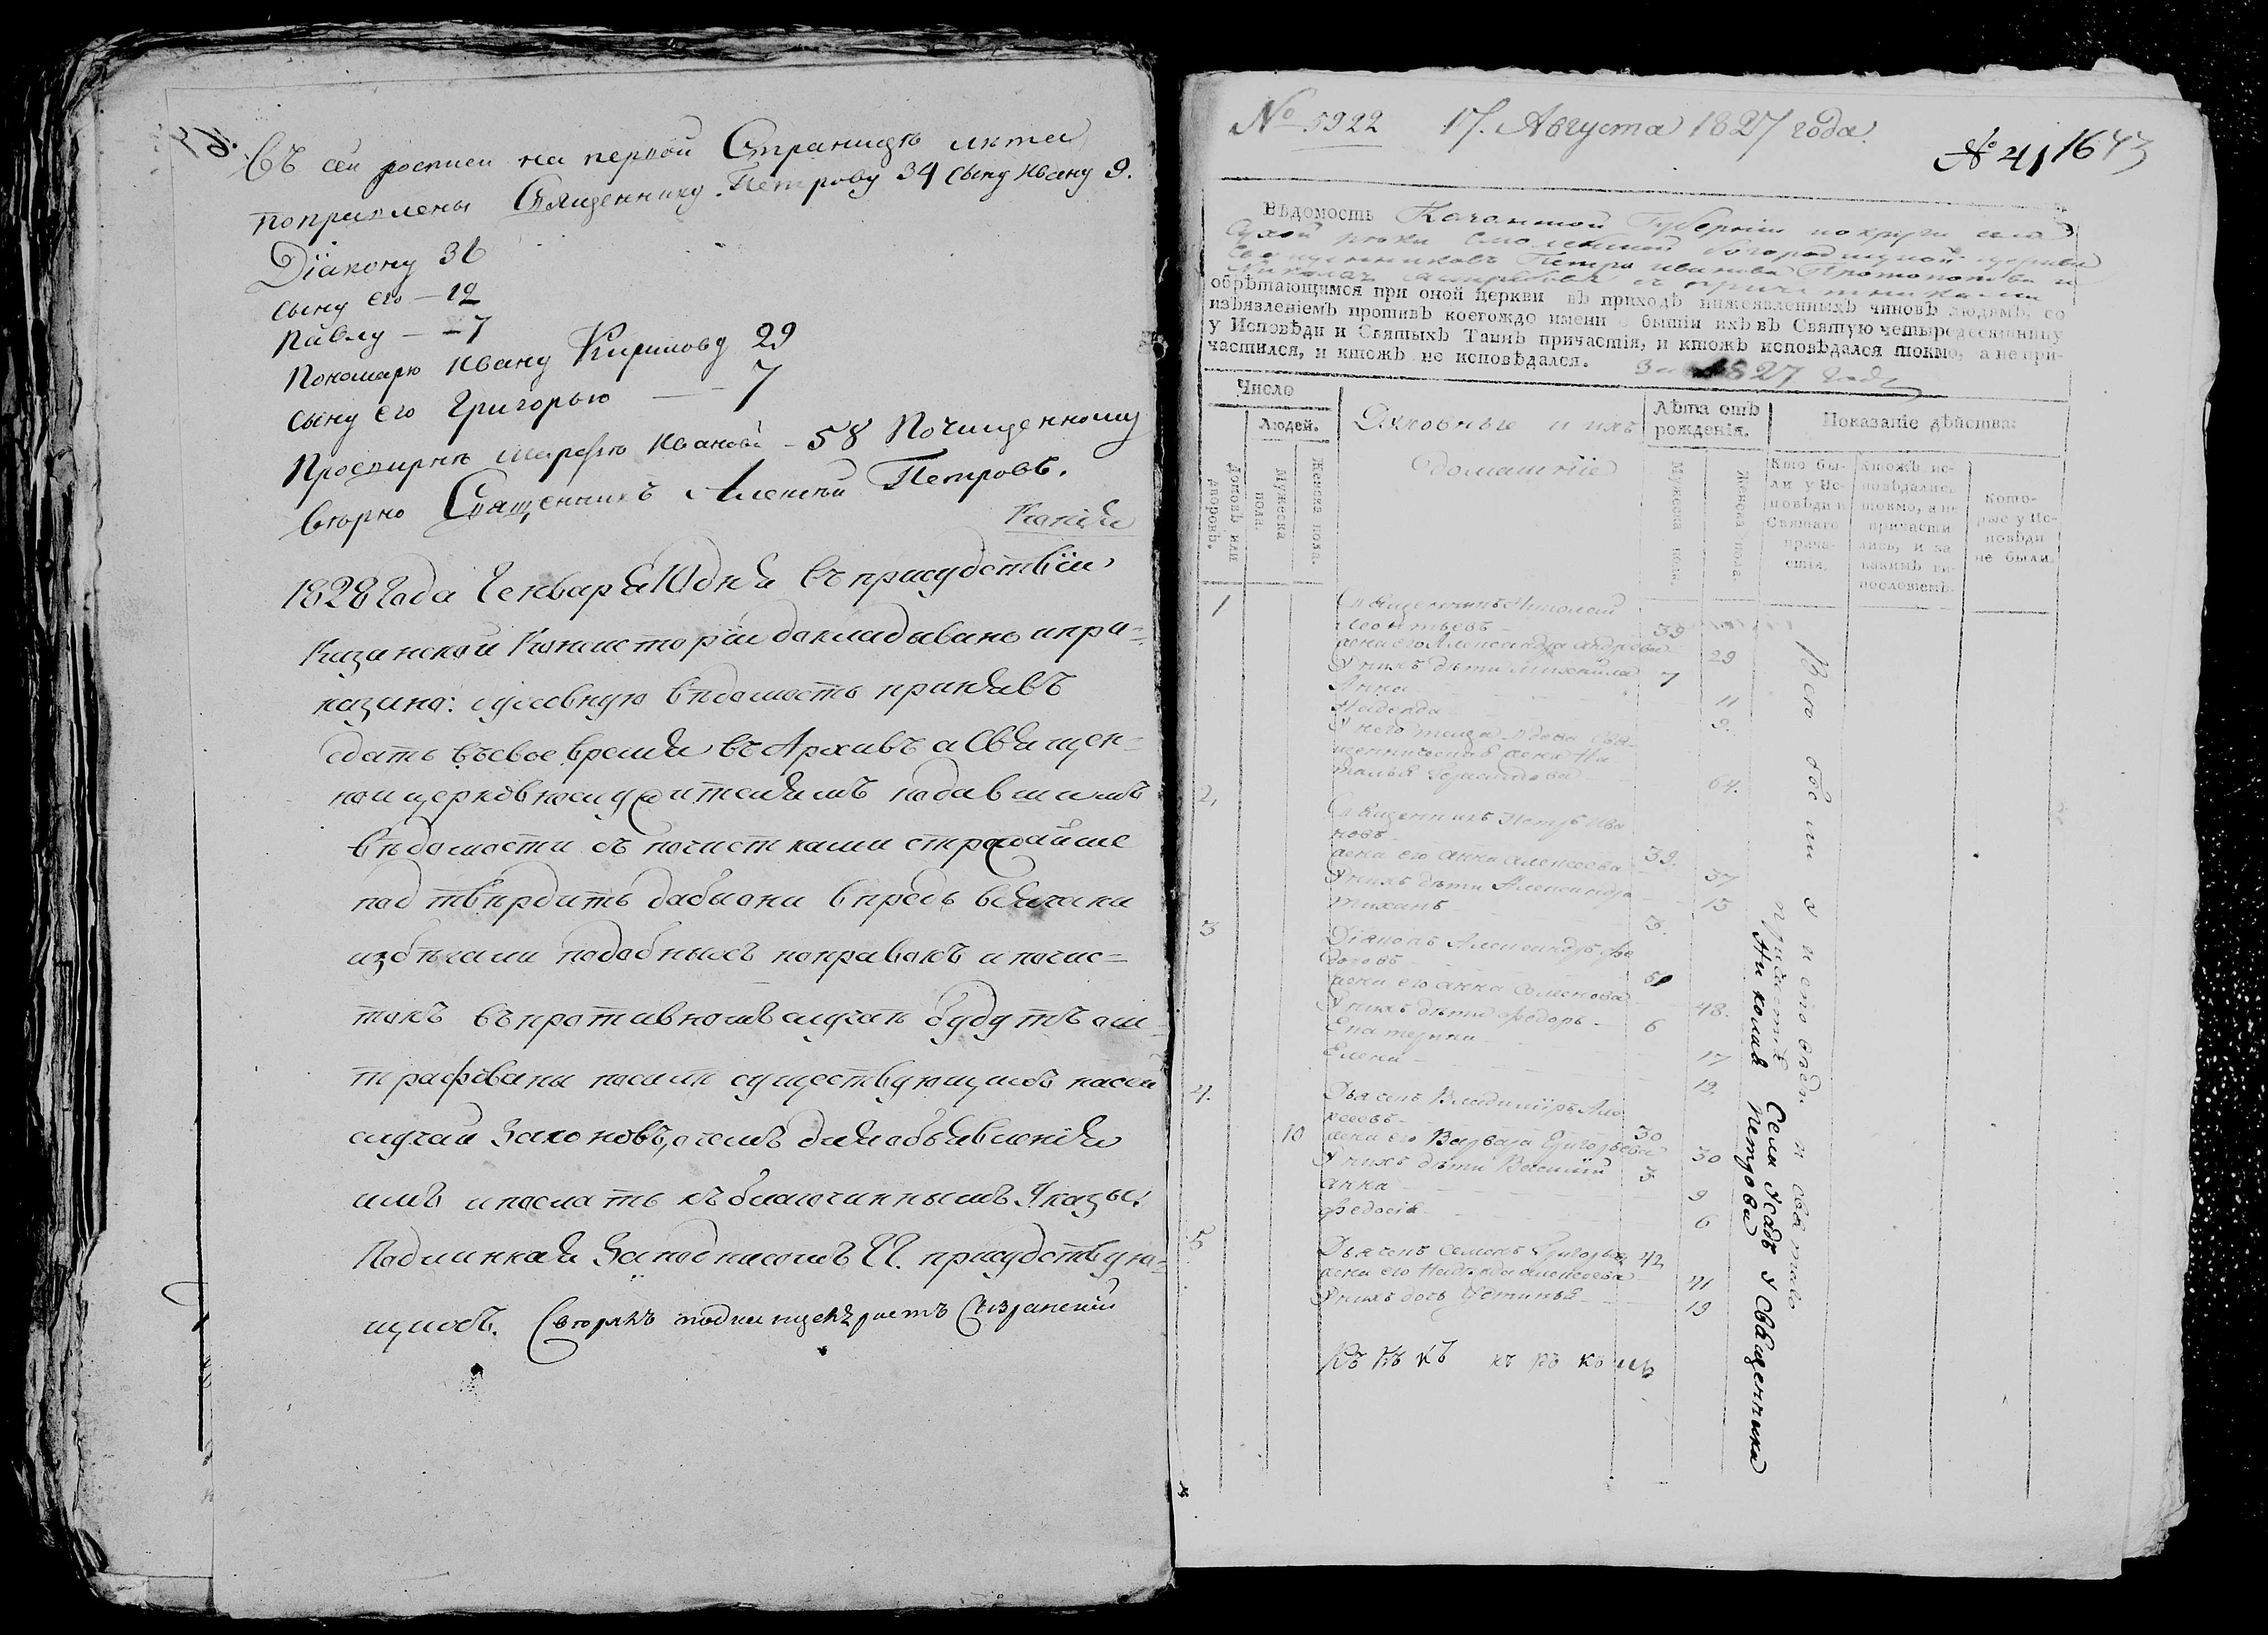 Въ сей росписи на первой Страницѣ лѣта
поправлены Священнику Петрову 34 сыну Ивану 9.
Дїакону 36
сыну его — 12
Павлу — 7
Пономарю Ивану Кирилову 29
сыну его Григорью — 7
Просвирнѣ Марфѣ Ивановой — 58 Почищенному
вѣрно Священникъ Алексѣй Петровъ.
Копїя
1828 Года Генваря 10 дня въ присудствїи
Казанской Консисторїи докладывано и при=
казано: духовную вѣдомость принявъ
сдать въ свое время въ Архивъ а Священ=
но и церковнослужителямъ подавшимъ
вѣдомости съ почистками строжайше
подтвѣрдить дабы они впредь всячески
избѣгали подобныхъ поправокъ и почис=
токъ въ противномъ случаѣ будутъ ош
трафованы по силѣ существующихъ на сей
случай Законовъ, о чемъ для объявленїя
имъ и послать къ благочиннымъ Указы.
Подлинная За подписомъ ГГ. присудствую=
щихъ.
№ 5922 17. Августа 1827 года.
№ 41 1643
Вѣдомость Казанской Губернїи округи села
Сухой рѣки Смоленской Богородицкой церкви
Священниковъ Петра Иванова Протопопова и
Николая съ причетниками
обрѣтающимся при оной церкви въ приходѣ нижеявленныхъ чиновъ людямъ, со
изъявленіемъ противъ коегождо имени о бытіи ихъ въ Святую четыредесятницу
у Исповѣди и Святыхъ Таинъ причастія, и ктожъ исповѣдался токмо, а не при-
частился, и ктожъ не исповѣдался. За 1827 годъ
Число
Людей.
Дворовъ.
Домовъ или
Мужеска пола.
Женска пола.
Духовные и ихъ
домашнїе
Лѣта отъ
рожденія.
Мужеска пола.
Женска пола.
Показаніе дѣйства:
Кто бы-
ли у Ис-
повѣди и
Святаго
прича-
стія.
ктожъ ис-
повѣдались
токмо, а не
причасти
лись, и за
какимъ ви-
нословіемъ.
Кото-
рые у Ис-
повѣди
не были.
1 Священникъ Николай
Леонтьевъ 39
жена его Александра Андреева 29
У нихъ дѣти Михаила 7
Анна 11
Надежда 9.
У него теща вдова Свя-
щенническая жена На
талья 64.
2, Священникъ Петръ Ива
новъ 39.
жена его Анна Алексеева 37
У нихъ дѣти Александра 13
Тихонъ 3.
3 Дїаконъ Александръ Фе
доровъ 51
жена его Анна Семенова 48.
У нихъ дѣти Федоръ 6
Екатерина 17
Елена 12
4. Дьячекъ Владимїръ Але
ксеевъ 30
10 жена его Варвара Григорьева 30
У нихъ дѣти Василїй 3
Анна 9
Федосїя 6
5 Дьячекъ Семенъ Григорьевъ 42
жена его Надежда Алексеева 41
У нихъ дочь Устинья 19
Къ Къ Къ къ къ къ
Всѣ были у исповѣди и святаго
причастїя Села Усадъ у Священника
Николая Петрова